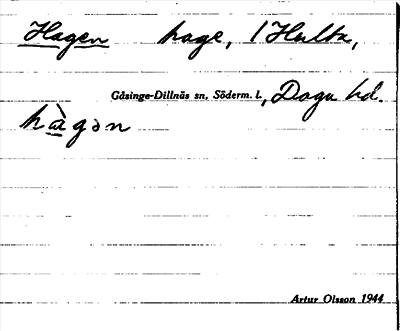 Hagen hage, 1 Hulta,
Gåsinge-Dillnäs sn, Söderm. l., Daga hd.
hàgən
Artur Olsson 1944